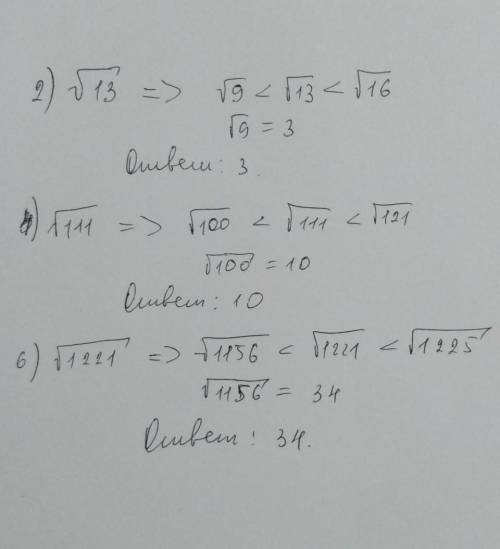 2) √13 => √9 < √13 < √16
√9 = 3
Ответ: 3.
4) √111 => √100 < √111 < √121
√100 = 10
Ответ: 10
6) √1221 => √1156 < √1221 < √1225
√1156 = 34
Ответ: 34.